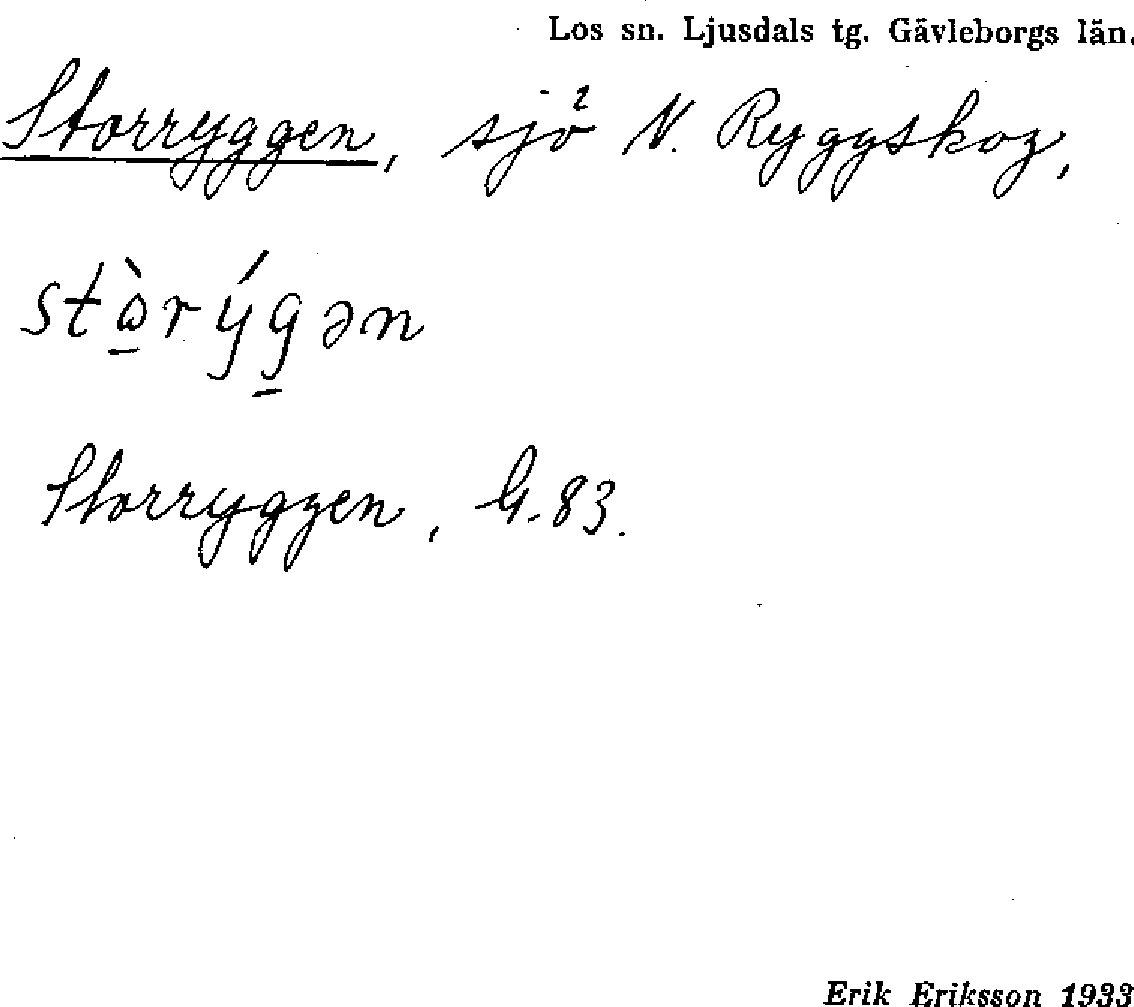 Los sn. Ljusdals tg. Gävleborgs län.
Storryggen, sjö N. Ryggskog,
stɷ̱̀rýg̱ən
Storryggen, G. 83.
Erik Eriksson 1933